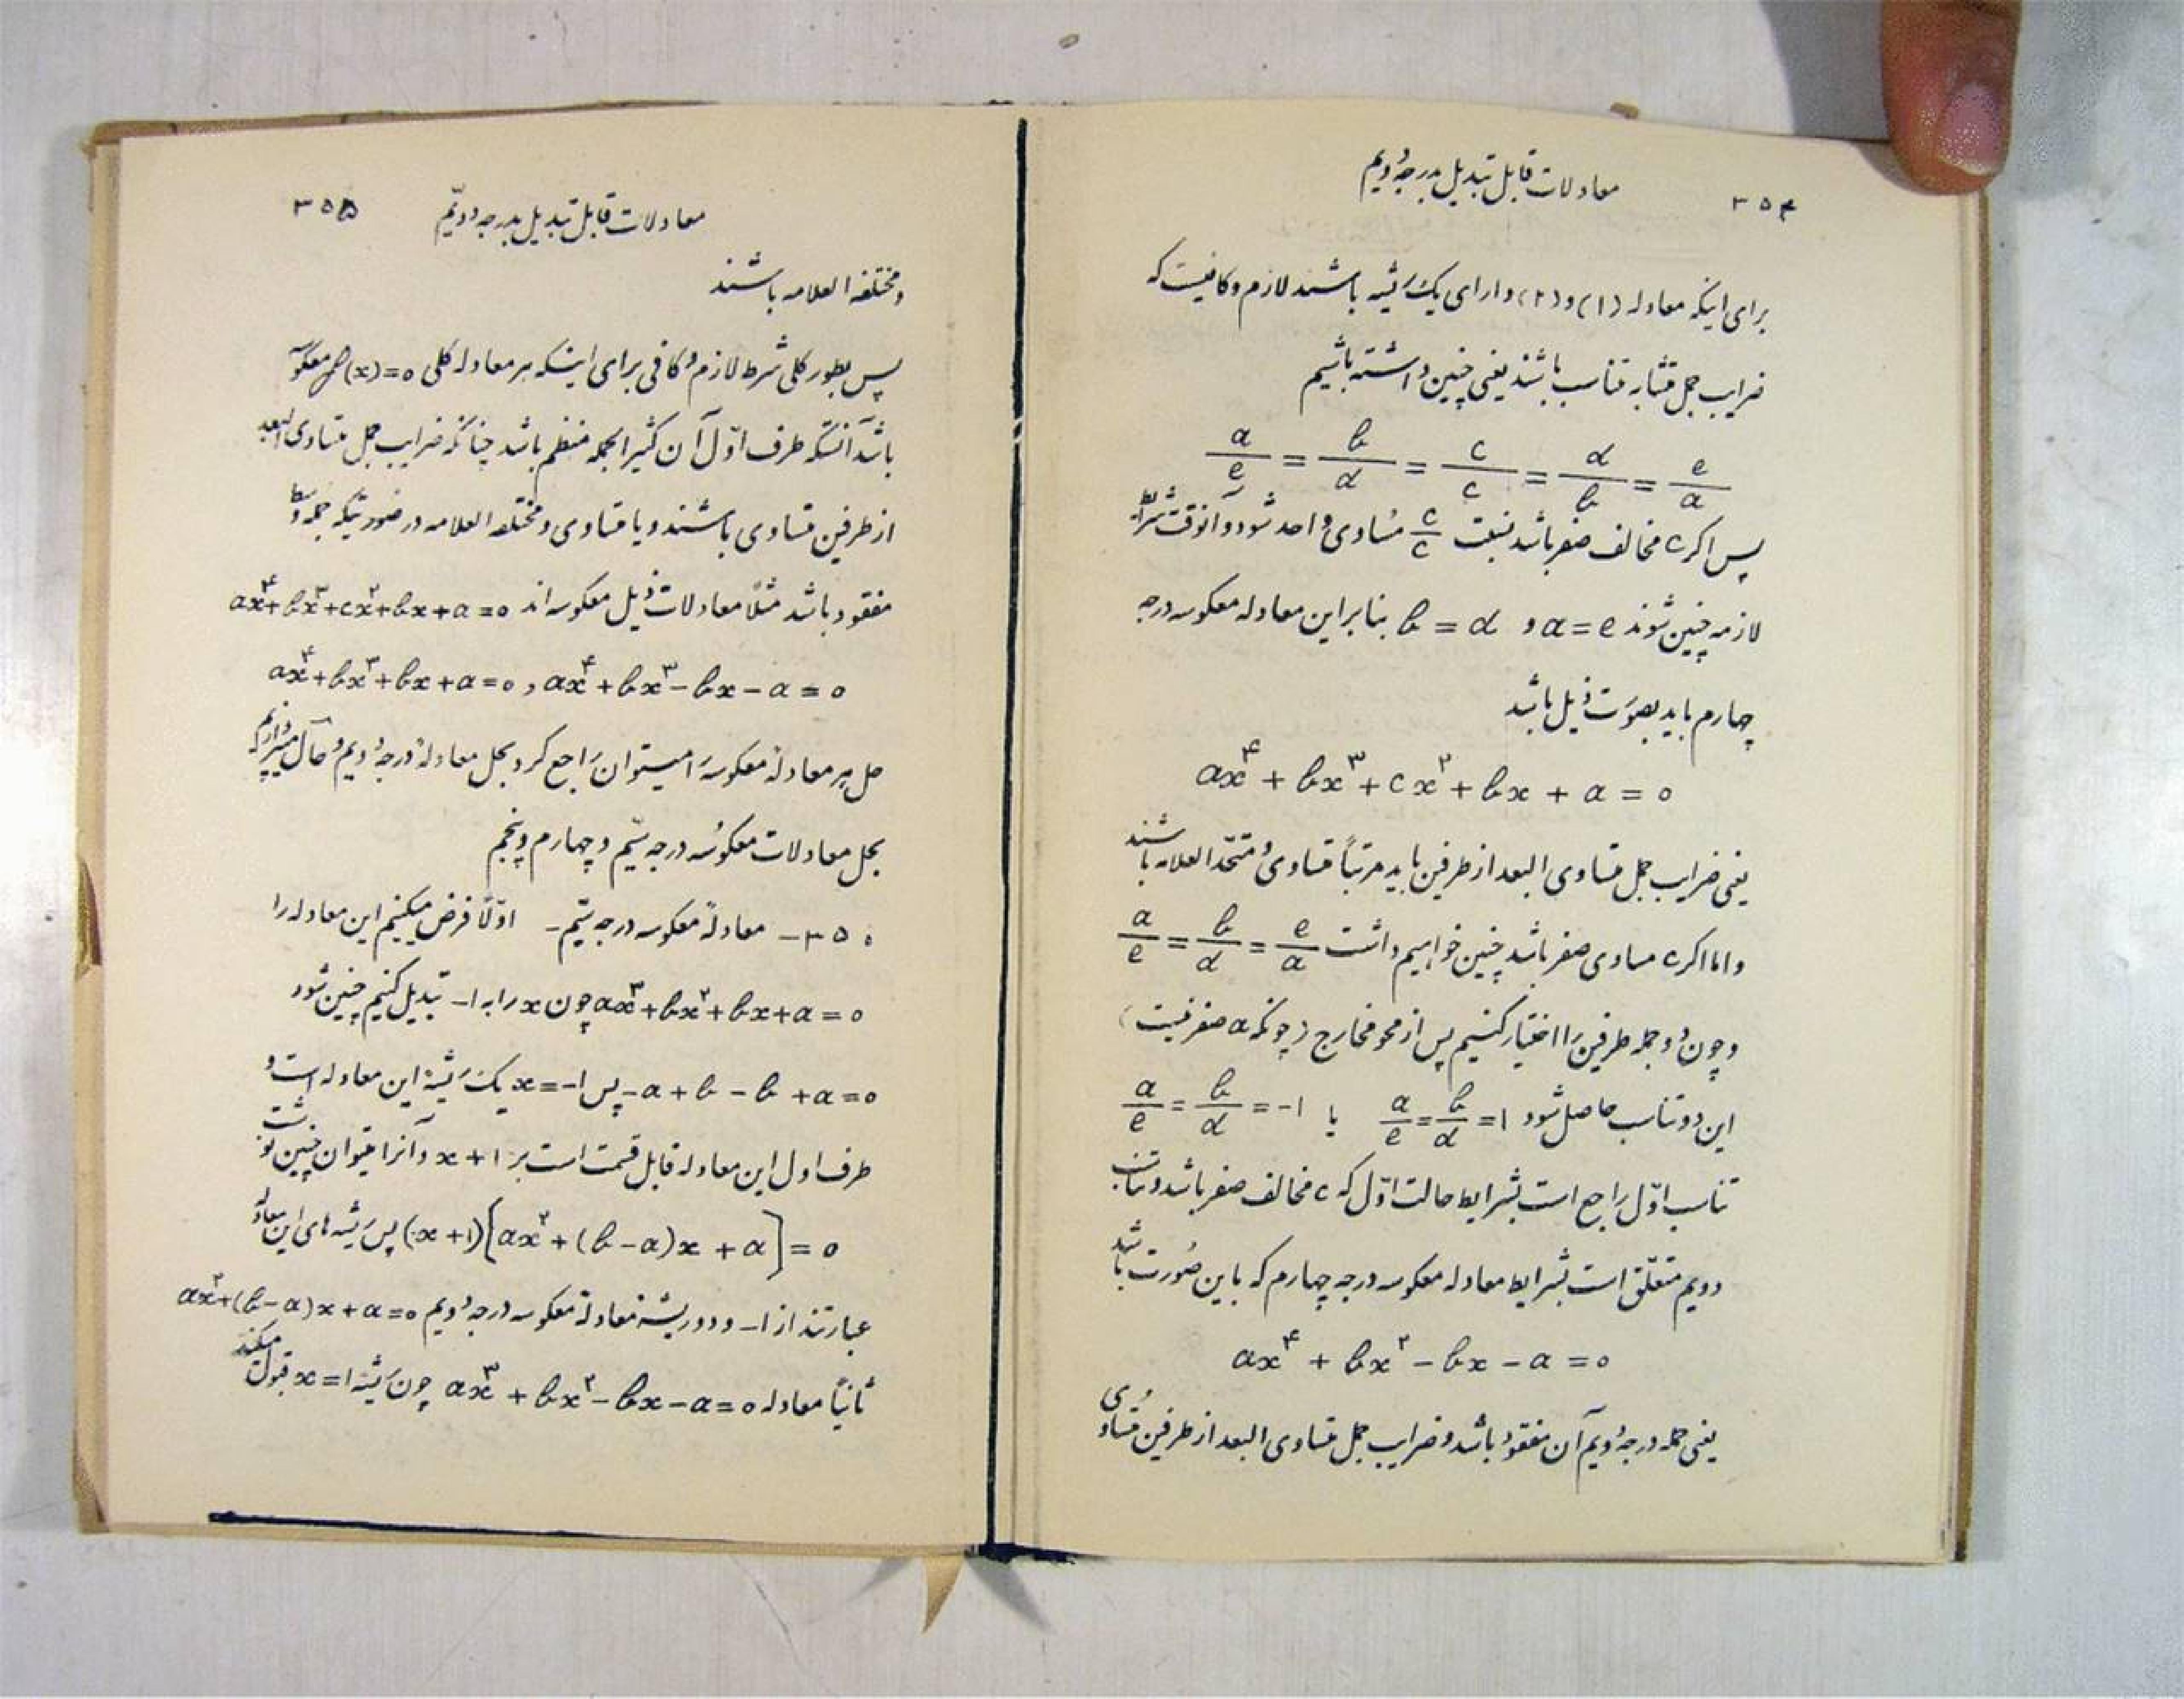 ۳۵۴ معادلات قابل تبدیل بدرجهٔ دویم
برای اینکه معادله (۱) و (۲) دارای یک ریشه باشند لازم و کافیست که
ضرایب جمل متشابه متناسب باشند یعنی چنین داشته باشیم
a/e = b/d = c/c = d/b = e/a
پس اگر c مخالف صفر باشد نسبت c/c مساوی واحد شود و آنوقت شرایط
لازمه چنین شوند a=e و b=d بنابراین معادله معکوسه درجه
چهارم باید بصورت ذیل باشد
ax^۴ + bx^۳ + cx^۲ + bx + a = ۰
یعنی ضرایب جمل متساوی البعد از طرفین باید مرتباً متساوی و متحد العلامه باشند
و اما اگر c مساوی صفر باشد چنین خواهیم داشت a/e = b/d = e/a
و چون دو جمله طرفین را اختیار کنیم پس از محو مخارج (چونکه a صفر نیست)
این دو تناسب حاصل شود a/e = b/d = ۱ یا a/e = b/d = -۱
تناسب اوّل راجع است بشرایط حالت اوّل که c مخالف صفر باشد و تناسب
دویم متعلق است بشرایط معادله معکوسه درجه چهارم که باین صورت باشد
ax^۴ + bx^۳ - bx - a = ۰
یعنی جمله درجه دویم آن مفقود باشد و ضرایب جمل متساوی البعد از طرفین متساوی
معادلات قابل تبدیل بدرجه دویّم ۳۵۵
و مختلفه العلامه باشند
پس بطور کلی شرط لازم و کافی برای اینکه هر معادله کلی (x)=۰ معکوسه
باشد آنستکه طرف اوّل آن کثیر الجمله منظم باشد چنانکه ضرایب جمل متساوی البعد
از طرفین متساوی باشند و یا متساوی و مختلفه العلامه در صورتیکه جمله وسط
مفقود باشد مثلاً معادلات ذیل معکوسه اند ax^۴+bx^۳+cx^۲+bx+a=۰
ax^۴+bx^۳+bx+a=۰ , ax^۴+bx^۳-bx-a=۰
حل هر معادلهٔ معکوسه را میتوان راجع کرد بحل معادلهٔ درجه دویم و حال میپردازیم
بحل معادلات معکوسه درجه سیّم و چهارم و پنجم
۳۵۰ـ معادلهٔ معکوسه درجه سیّم ـ اوّلاً فرض میکنیم این معادله را
ax^۳+bx^۲+bx+a=۰ چون x را به ۱- تبدیل کنیم چنین شود
-a+b-b+a=۰ پس x=-۱ یک ریشهٔ این معادله است و
طرف اول این معادله قابل قسمت است بر x+۱ و آنرا میتوان چنین نوشت
(x+۱)[ax^۲+(b-a)x+a]=۰ پس ریشه های این معادله
عبارتند از ۱- و دو ریشهٔ معادلهٔ معکوسه درجه دویم ax^۲+(b-a)x+a=۰
ثانیاً معادله ax^۳+bx^۲-bx-a=۰ چون ریشهٔ x=۱ قبول میکند